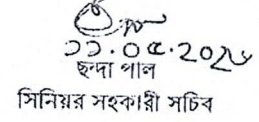 ১১.০৫.২০২৬
ছন্দা পাল
সিনিয়র সহকারী সচিব